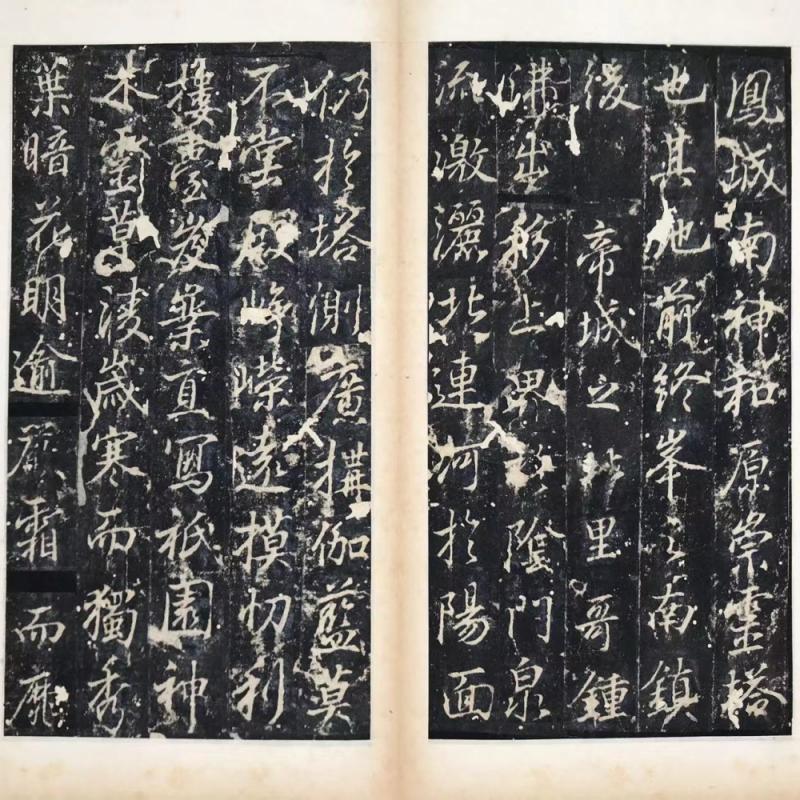 鳳城南神和原崇靈塔
也其地前終峯之南鎮
後帝城之北里哥鍾
出移上界於陰門泉
流激灑北連河於陽面
仍於塔側廣搆伽藍莫
不堂殿崢嶸遠摸忉利
樓臺岌嶪直寫祇園神
木靈草淩歲寒而獨秀
葉暗花明逾嚴霜而靡